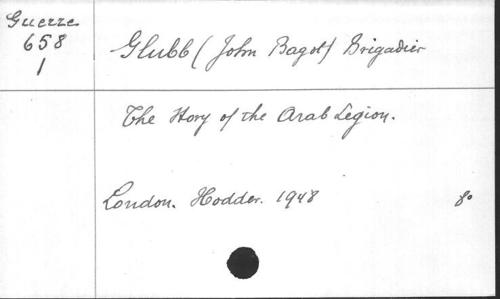 Guerre
658
1
Glubb (John Bagot) Brigadier
The Story of the Arab Legion.
London. Hodder. 1948 8o